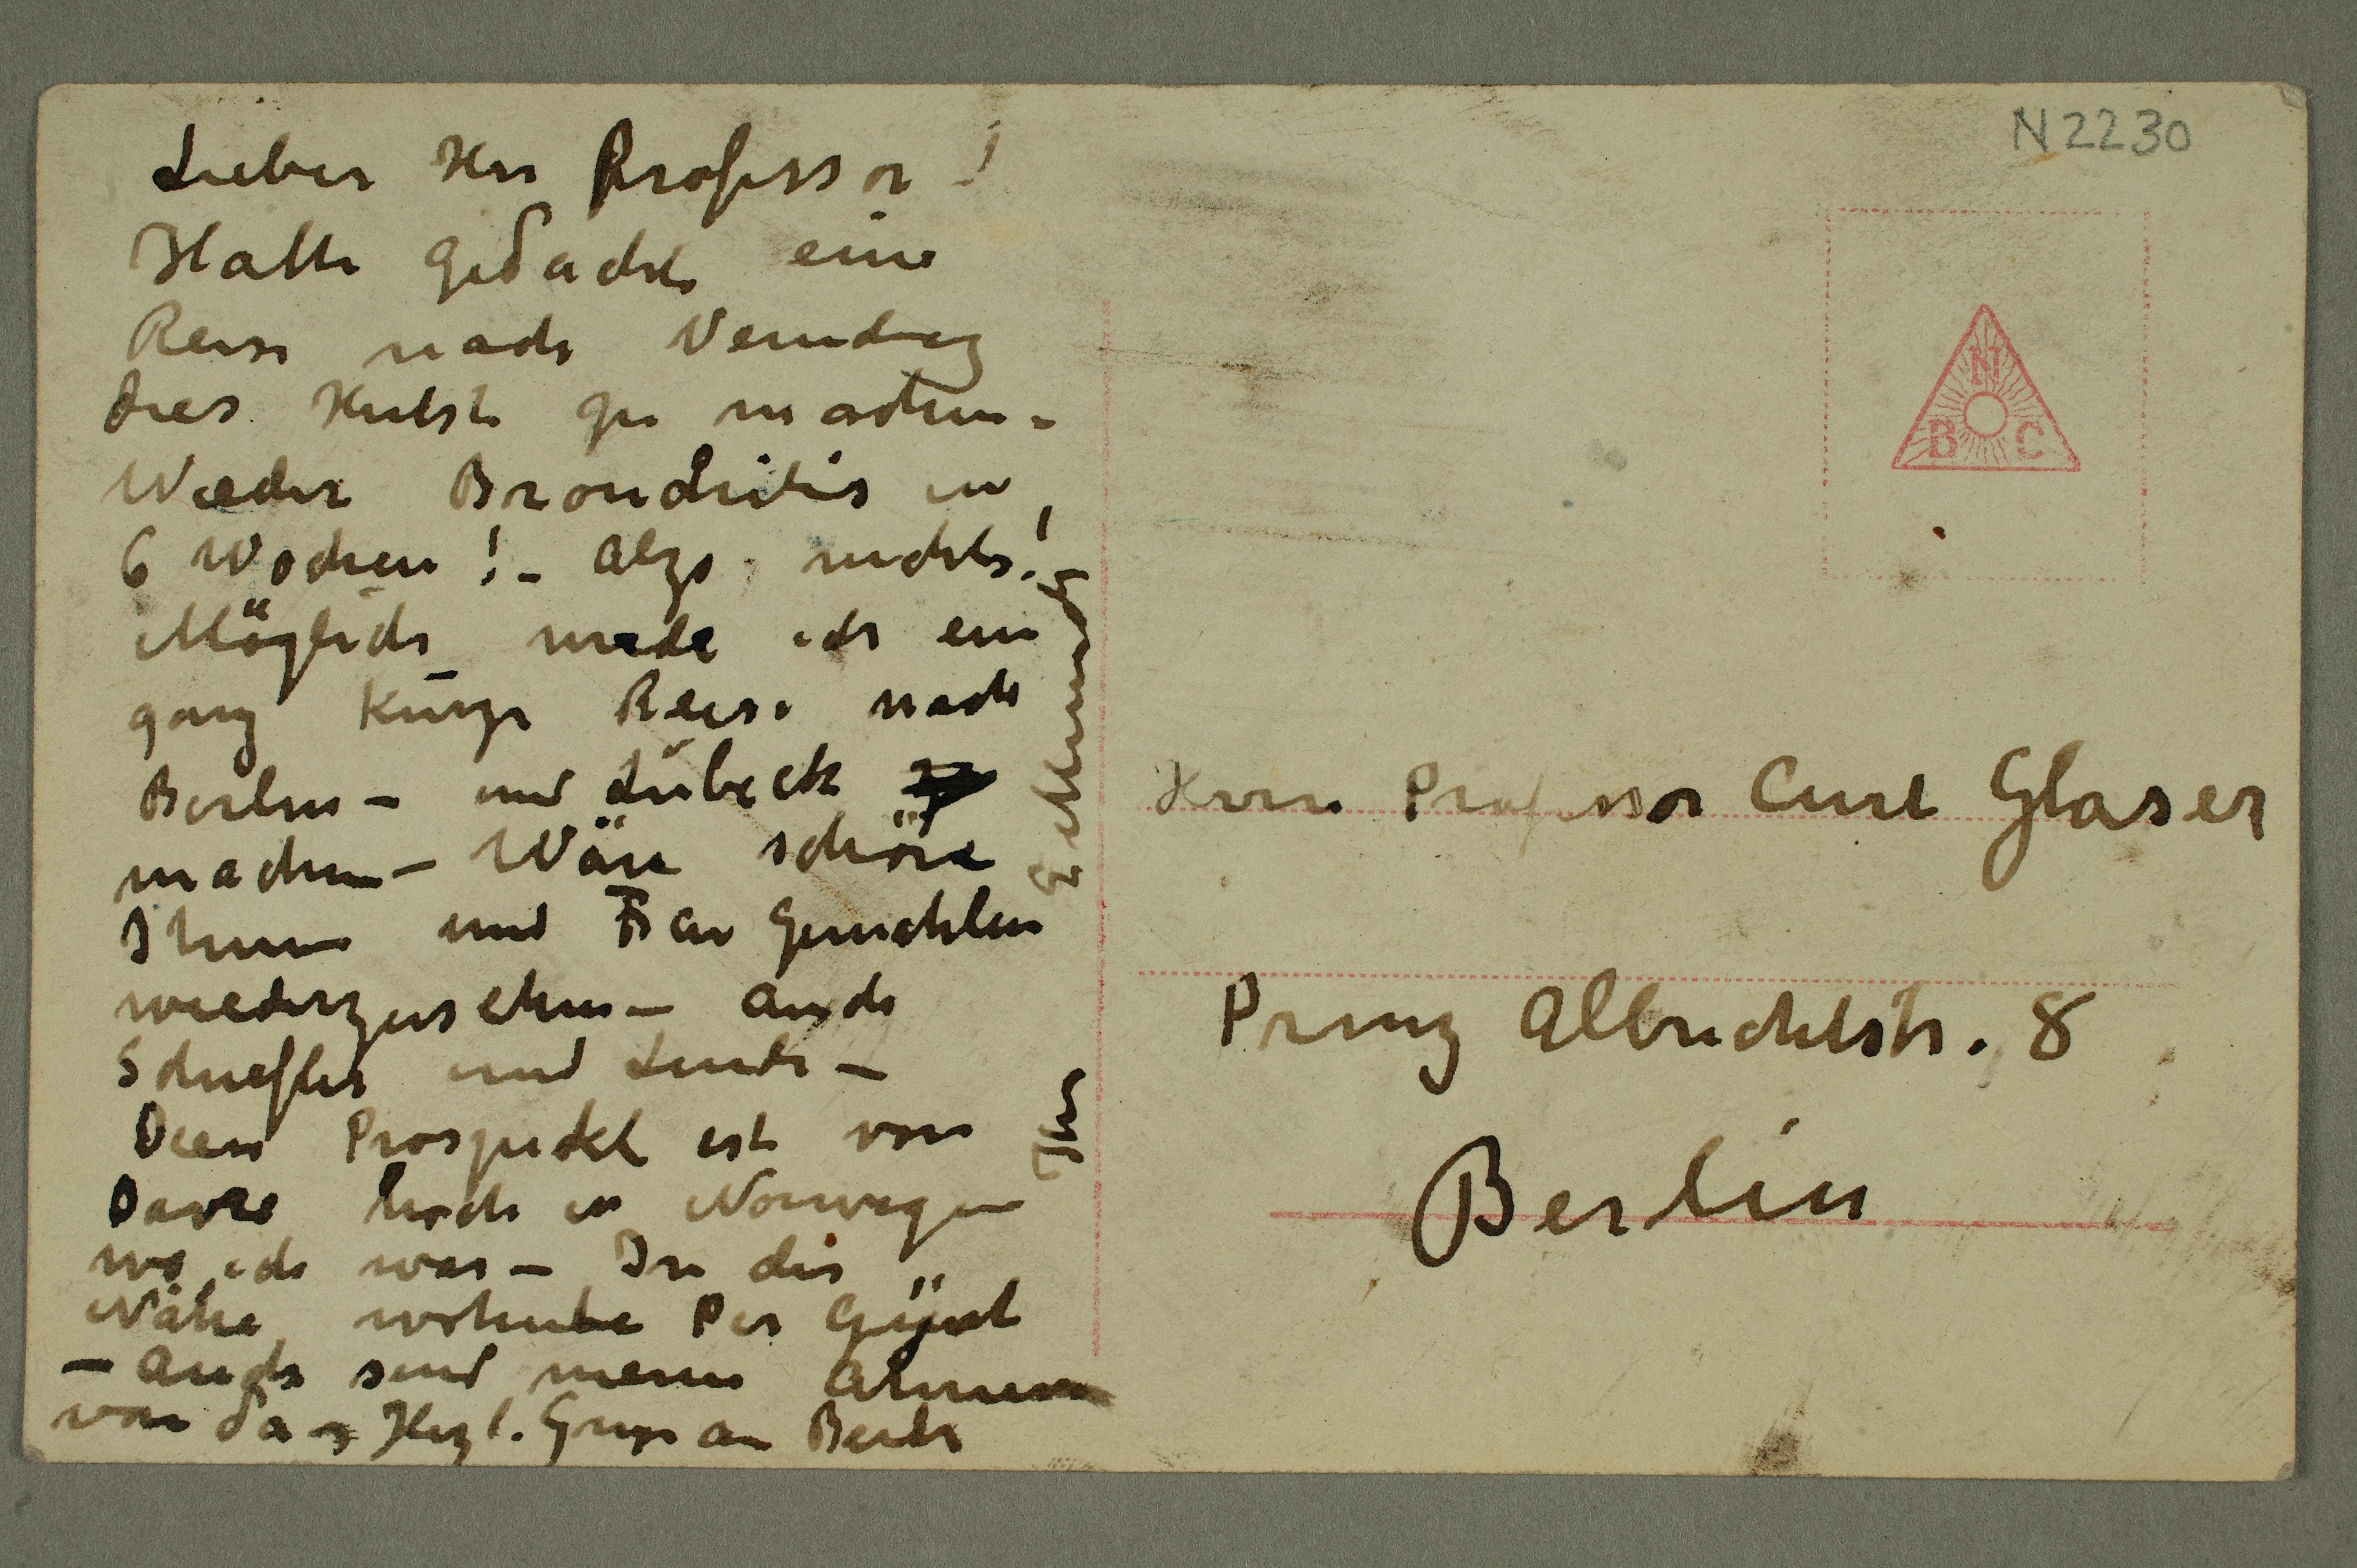 Lieber Herr Professor!
Hatte gedacht eine
Reise nach Venedig
dies Herbst zu machen –
Wieder Bronchitis in
6 Wochen! – Also nichts!
Möglich werde ich ein
ganz kurze Reise nach
Berlin – und Lübeck
machen – Wäre schöne
Ihnen und Frau Gemahlin
wiederzusehen – auch
Scheffler und Linde –
Dies Prospekt ist von
Dovre hoch in Norwegen
wo ich war – In die
Nähe wohnte Per Gÿnt
– auch sind meine Ahnen
von da – Hezl. Grus an Beide
Ihr
E Munch
N2230
N
B C
Herrn Professor Curt Glaser
Prinz Albrechtstr. 8
Berlin